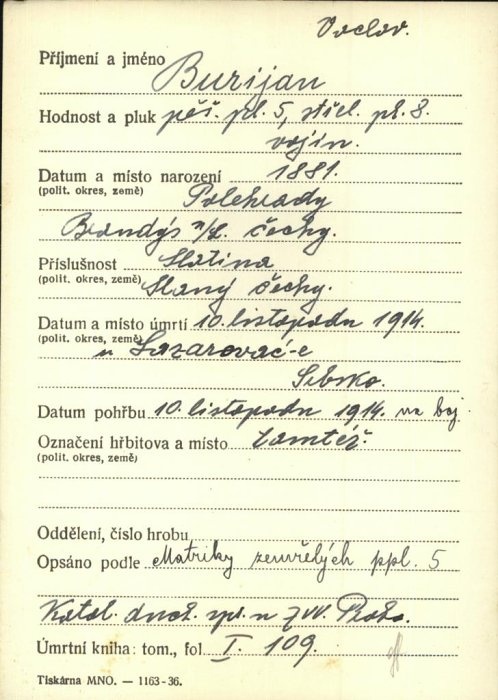 Václav.
Příjmení a jméno Burijan
Hodnost a pluk pěš. pl. 5, střel. pl. 8.
vojín.
Datum a místo narození 1881.
(polit. okres, země) Polehrady
Brandýs n/L. Čechy.
Příslušnost Slatina
(polit. okres, země) Slaný Čechy.
Datum a místo úmrtí 10. listopadu 1914.
(polit. okres, země) u Lazarovač-e
Srbsko.
Datum pohřbu 10. listopadu 1914. na boj.
Označení hřbitova a místo tamtéž.
(polit. okres, země)
Oddělení, číslo hrobu
Opsáno podle Matriky zemřelých ppl. 5
Katol. duch. spr. u ZVV. Praha.
Úmrtní kniha: tom., fol I. 109.
Tiskárna MNO. — 1163-36.